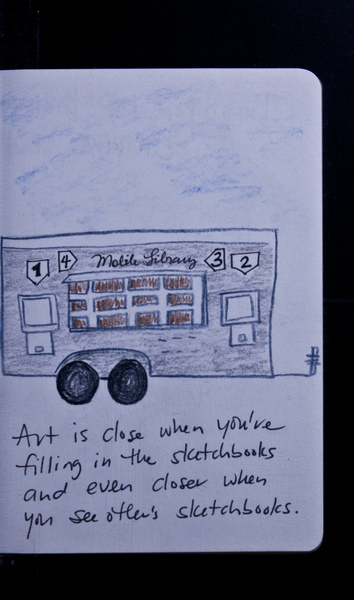 1 4 Mobile Library 3 2
Art is close when you've
filling in the sketchbooks
and even closer when
you see other's sketchbooks.